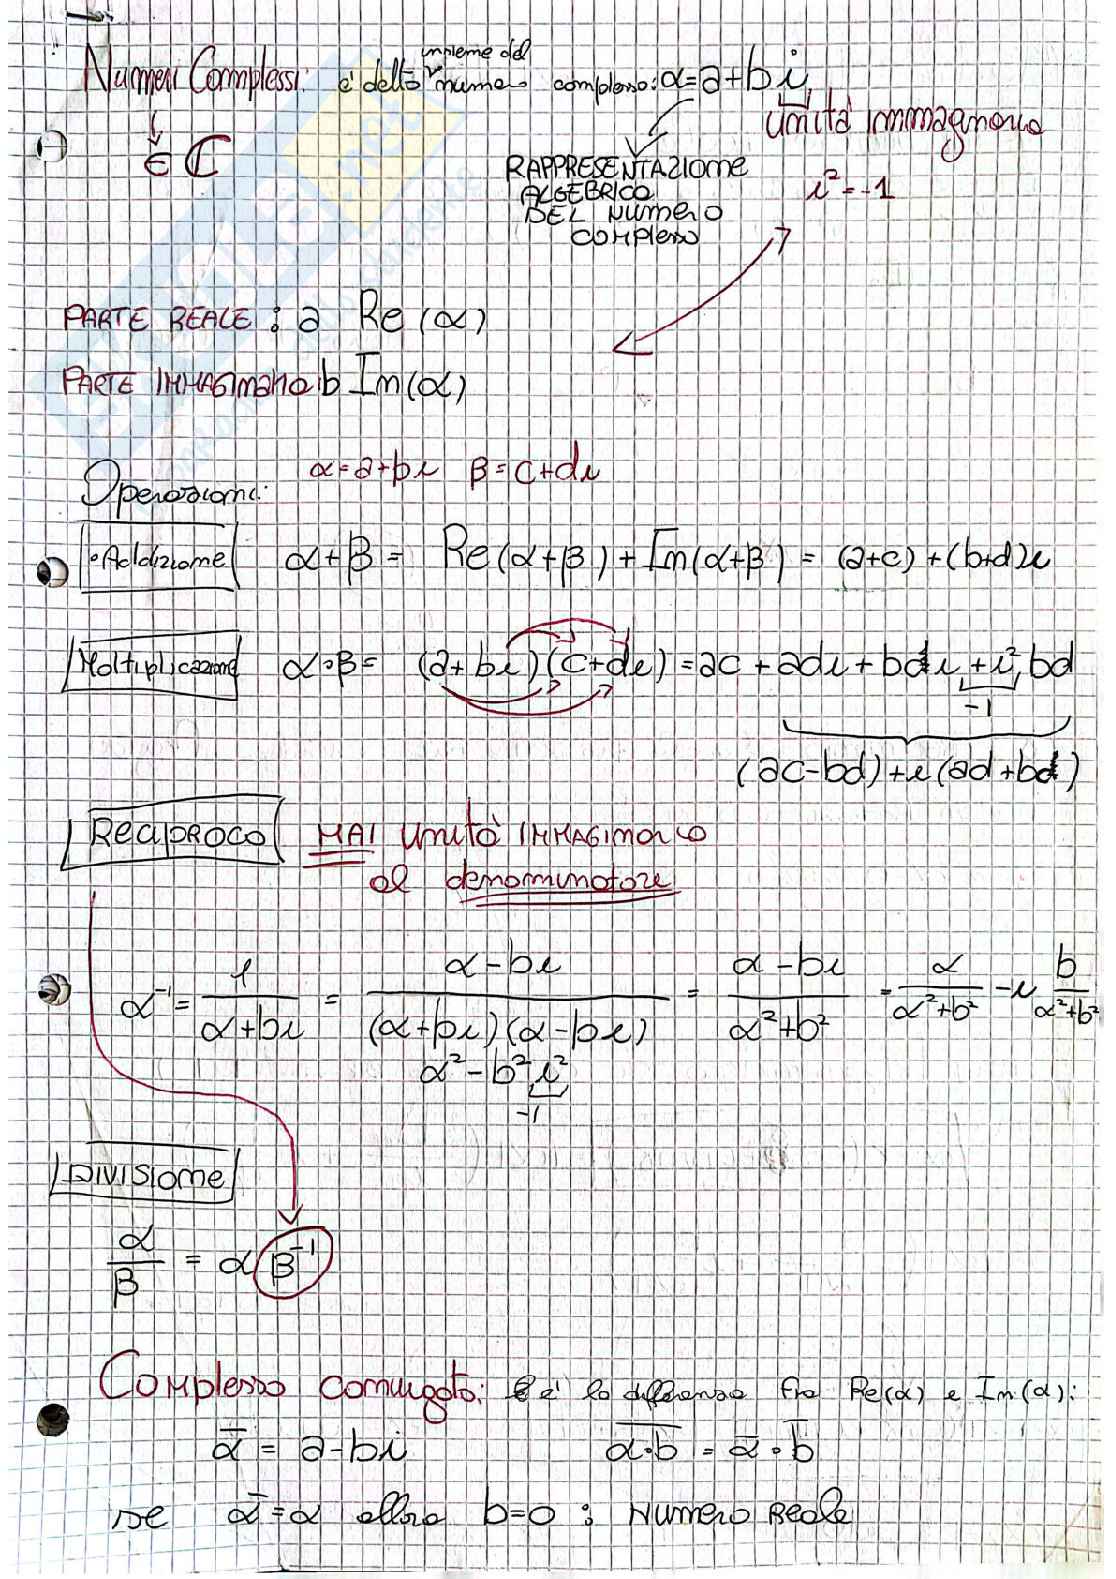 Numeri Complessi: è detto insieme del numero complesso: α = a + bi
unità immaginaria
∈ ℂ
RAPPRESENTAZIONE
ALGEBRICA
DEL NUMERO
COMPLESSO
i² = -1
PARTE REALE : a Re(α)
PARTE IMMAGINARIA: b Im(α)
Operazioni: α = a + bi β = c + di
• Addizione α + β = Re(α+β) + Im(α+β) = (a+c) + (b+d)i
Moltiplicazione α • β = (a+bi)(c+di) = ac + adi + bdi + i² bd
-1
(ac-bd) + i(ad+bd)
RECIPROCO MAI unità IMMAGINARIA
al denominatore
α⁻¹ = 1/(α+bi) = (α-bi)/((α+bi)(α-bi)) = (α-bi)/(α²+b²) = α/(α²+b²) - i b/(α²+b²)
α² - b² i²
-1
DIVISIONE
α/β = α β⁻¹
Complesso coniugato: è la differenza fra Re(α) e Im(α):
ᾱ = a - bi \overline{α•b} = ᾱ • b̄
se ᾱ = α allora b=0 : Numero Reale